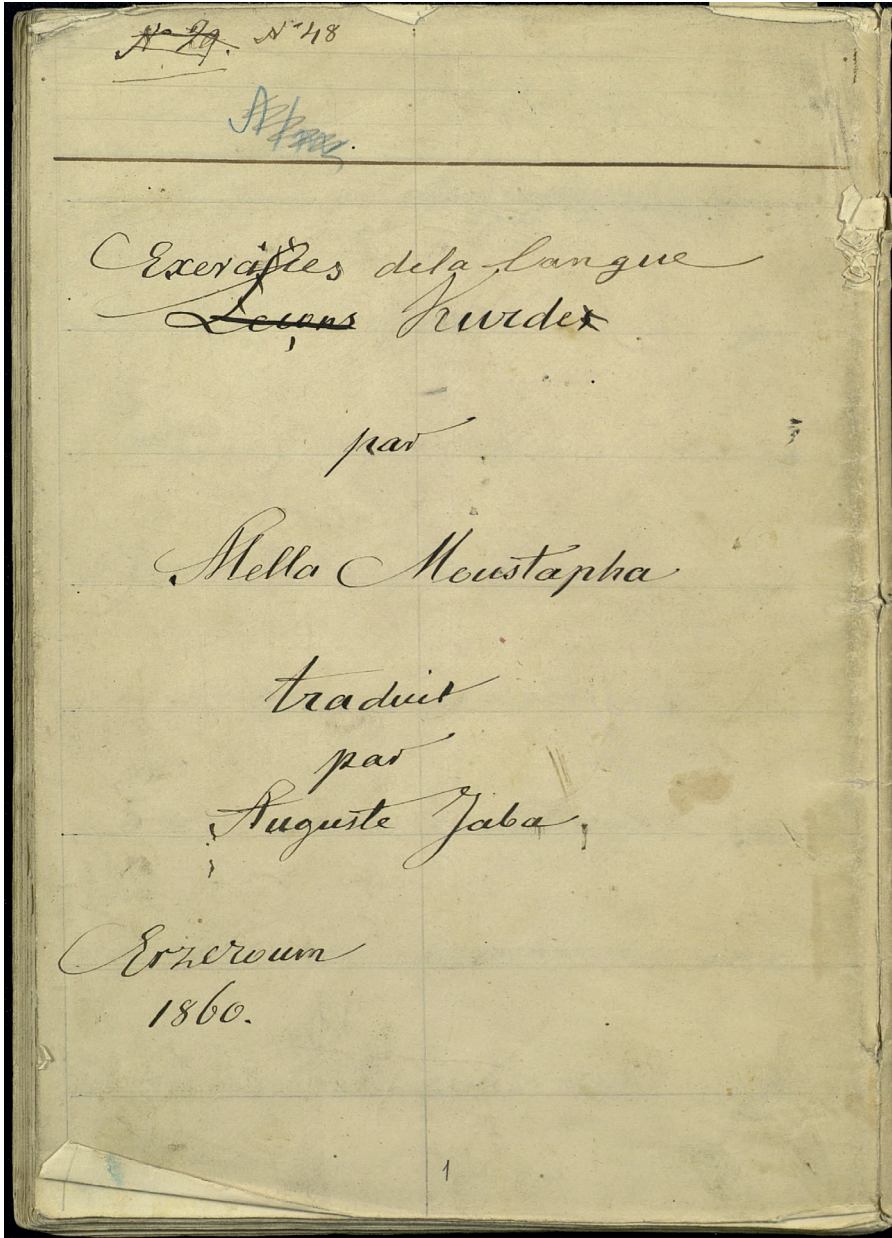 N° 29. N° 48
Exercices de la langue
Leçons Kurdes
par
Mella Moustapha
traduit
par
Auguste Jaba.
Erzeroum
1860.
1